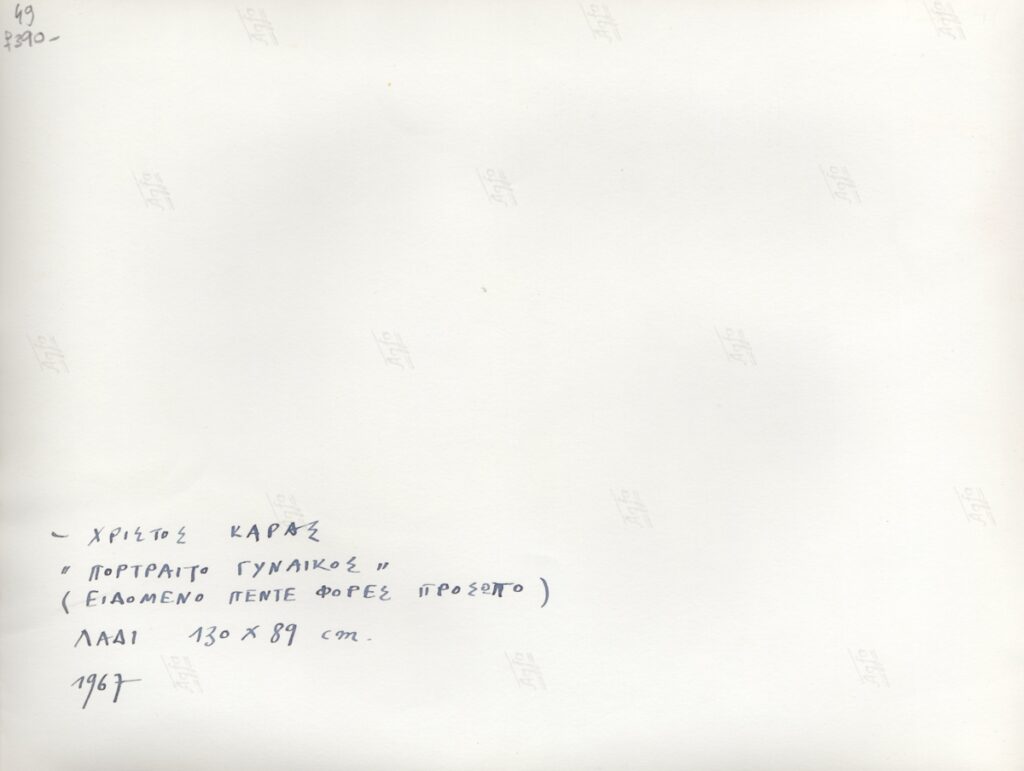 49
£390-
- ΧΡΙΣΤΟΣ ΚΑΡΑΣ
"ΠΟΡΤΡΑΙΤΟ ΓΥΝΑΙΚΟΣ"
(ΕΙΔΟΜΕΝΟ ΠΕΝΤΕ ΦΟΡΕΣ ΠΡΟΣΩΠΟ)
ΛΑΔΙ 130 X 89 cm.
1967